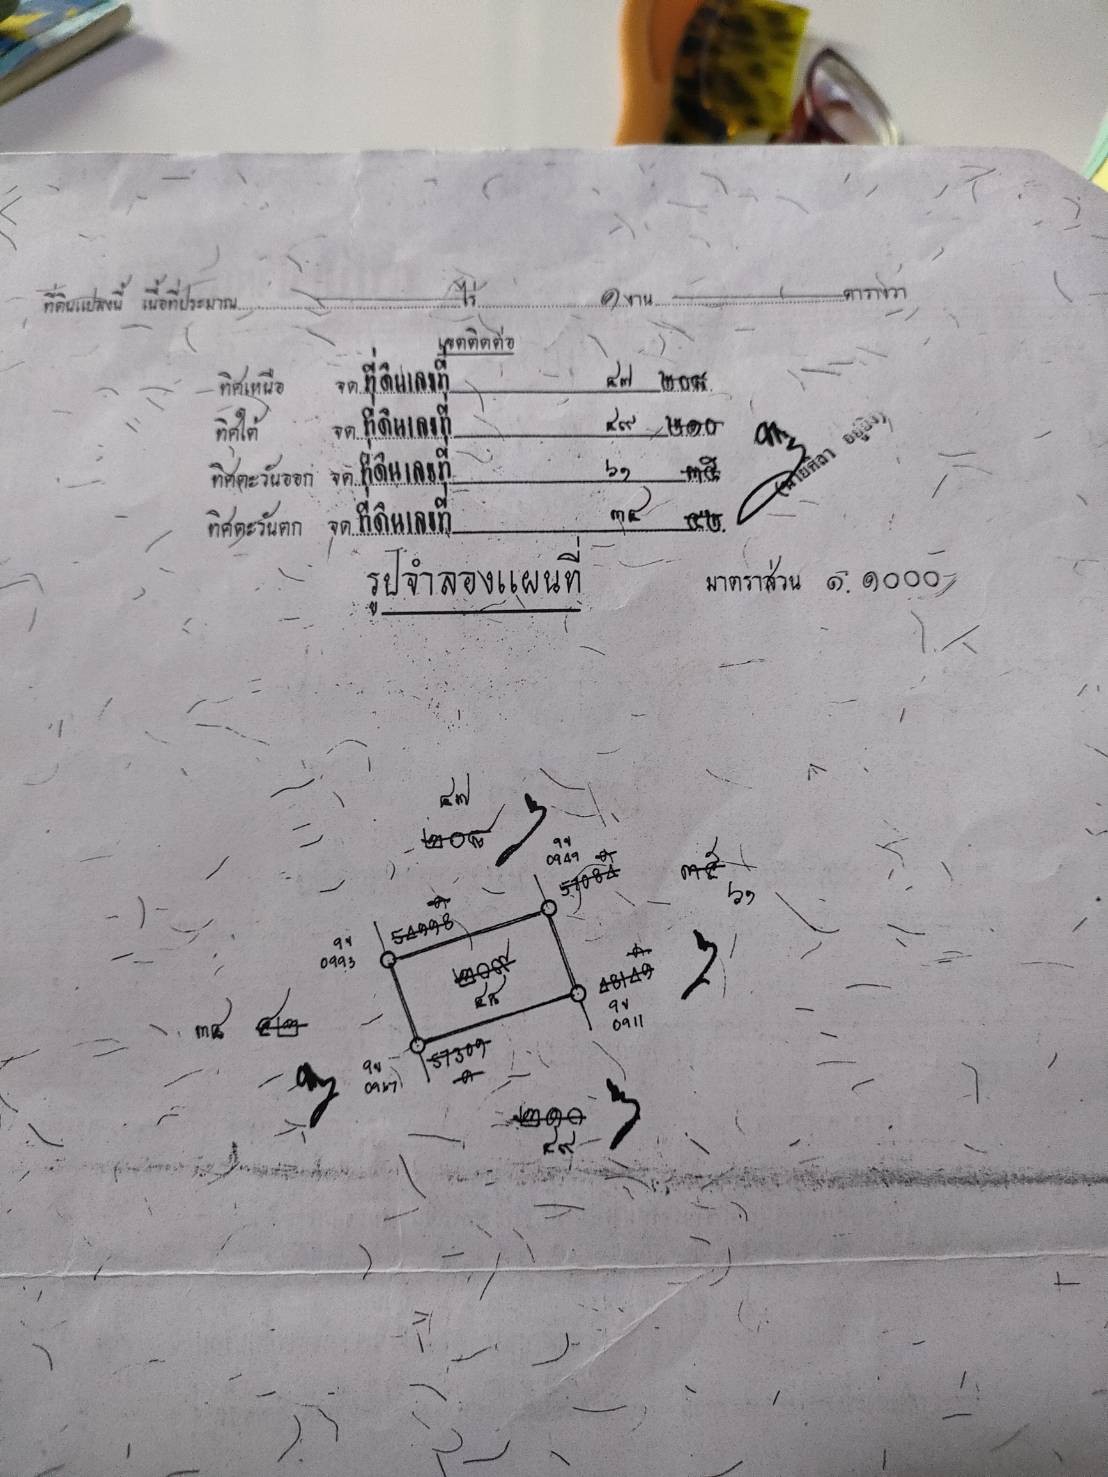 ที่ดินแปลงนี้ เนื้อที่ประมาณ ไร่ ๑ งาน ตารางวา
เขตติดต่อ
ทิศเหนือ จด ที่ดินเลขที่ ๔๗ ๒๐๘
ทิศใต้ จด ที่ดินเลขที่ ๔๙ ๒๑๐
ทิศตะวันออก จด ที่ดินเลขที่ ๖๑ ๓๕
ทิศตะวันตก จด ที่ดินเลขที่ ๓๔ ๕๒
รูปจำลองแผนที่ มาตราส่วน ๑:๑๐๐๐
๔๗
๒๐๘
๓๕
๖๑
๒๐๙
๔๘
0993
0911
57309
๓๔
๒๑๐
๔๙